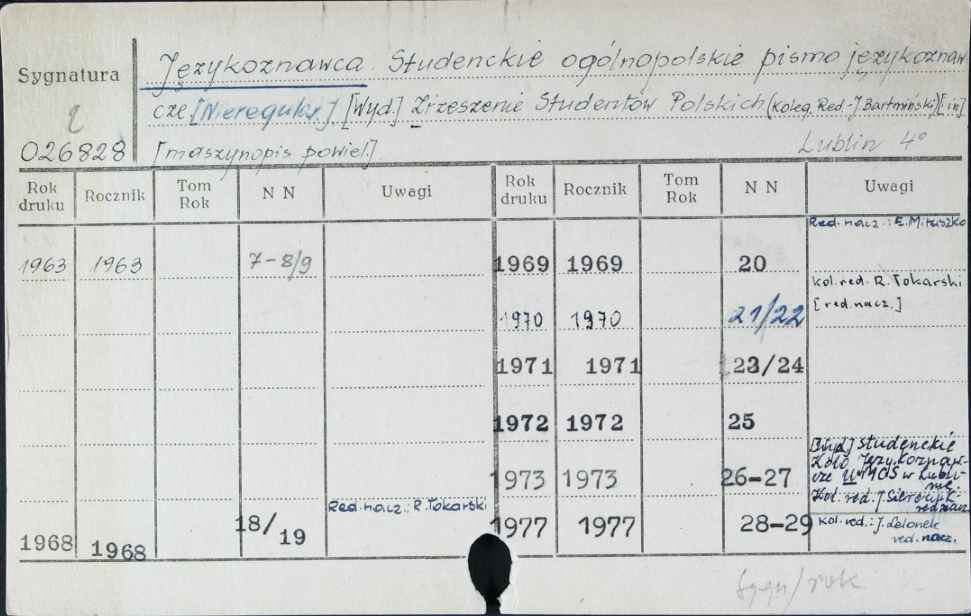 Sygnatura
Językoznawca. Studenckie ogólnopolskie pismo językoznaw
cze [Nieregular.] [Wyd] Zrzeszenie Studentów Polskich (Koleg. Red. J. Bartmiński) [in]
026828 [maszynopis powiel.] Lublin 4°
Rok druku Rocznik Tom Rok N N Uwagi Rok druku Rocznik Tom Rok N N Uwagi
Red. nacz.: E. Miruszko
1963 1963 7-8/9 1969 1969 20
kol. red. R. Tokarski
[red. nacz.]
1970 1970 21/22
1971 1971 23/24
1972 1972 25
[Wyd] Studenckie
Koło Językoznaw-
cze UMCS w Lubli-
nie.
1973 1973 26-27
Kol. red. J.
red. nacz.
1968 1968 18/19 Red. nacz.: R. Tokarski 1977 1977 28-29 kol. red.: J. Lelonek
red. nacz.
sygn/rok